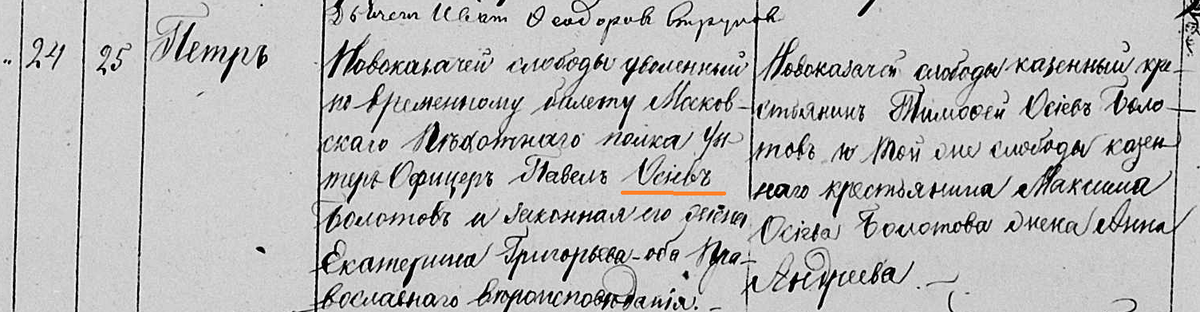 Дьячек Иван Феодоров Струков
24 25 Петръ
Новоказачей слободы уволенный
по временному билету Москов-
скаго Пѣхотнаго полка Ун-
теръ Офицеръ Павелъ Осіевъ
Болотовъ и законная его жена
Екатерина Григорьева – оба Пра-
вославнаго вѣроисповѣданія. –
Новоказачей слободы казенный кре-
стьянинъ Тимофей Осіевъ Боло-
товъ и той же слободы казен-
наго крестьянина Максима
Осіева Болотова жена Анна
Андреева. –